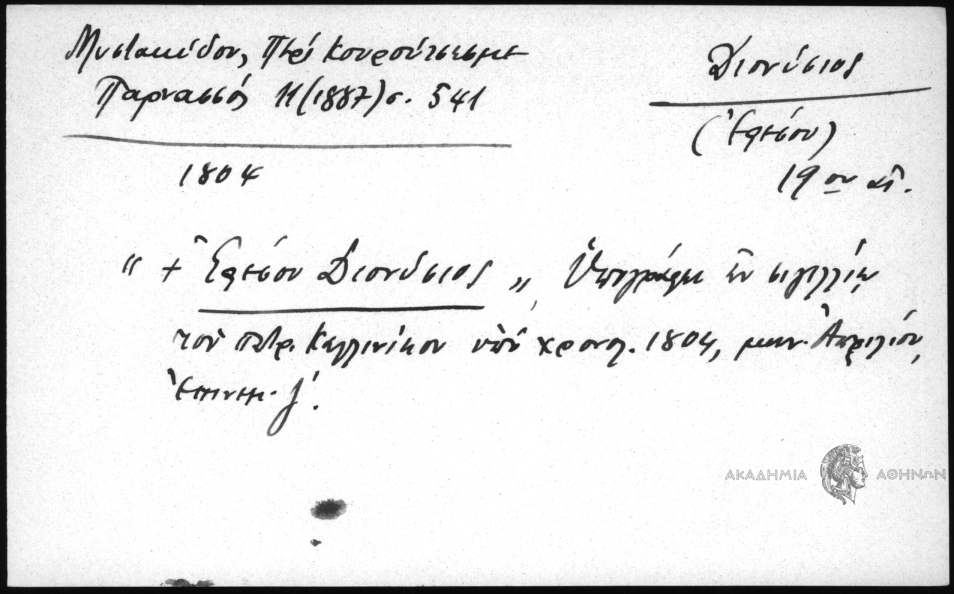 Μυστακίδου, Περί Κουρούτσεσμε
Παρνασσός 11 (1887) σ. 541
Διονύσιος
(Ἐφέσου)
19ου αἰ.
1804
"+ Ἐφέσου Διονύσιος„ Ὑπογράφει ἐν σιγιλλίῳ
τοῦ πατρ. Καλλινίκου ὑπό χρονολ. 1804, μην. Ἀπριλίου,
ἐπινεμ. ζ΄.
ΑΚΑΔΗΜΙΑ ΑΘΗΝΩΝ